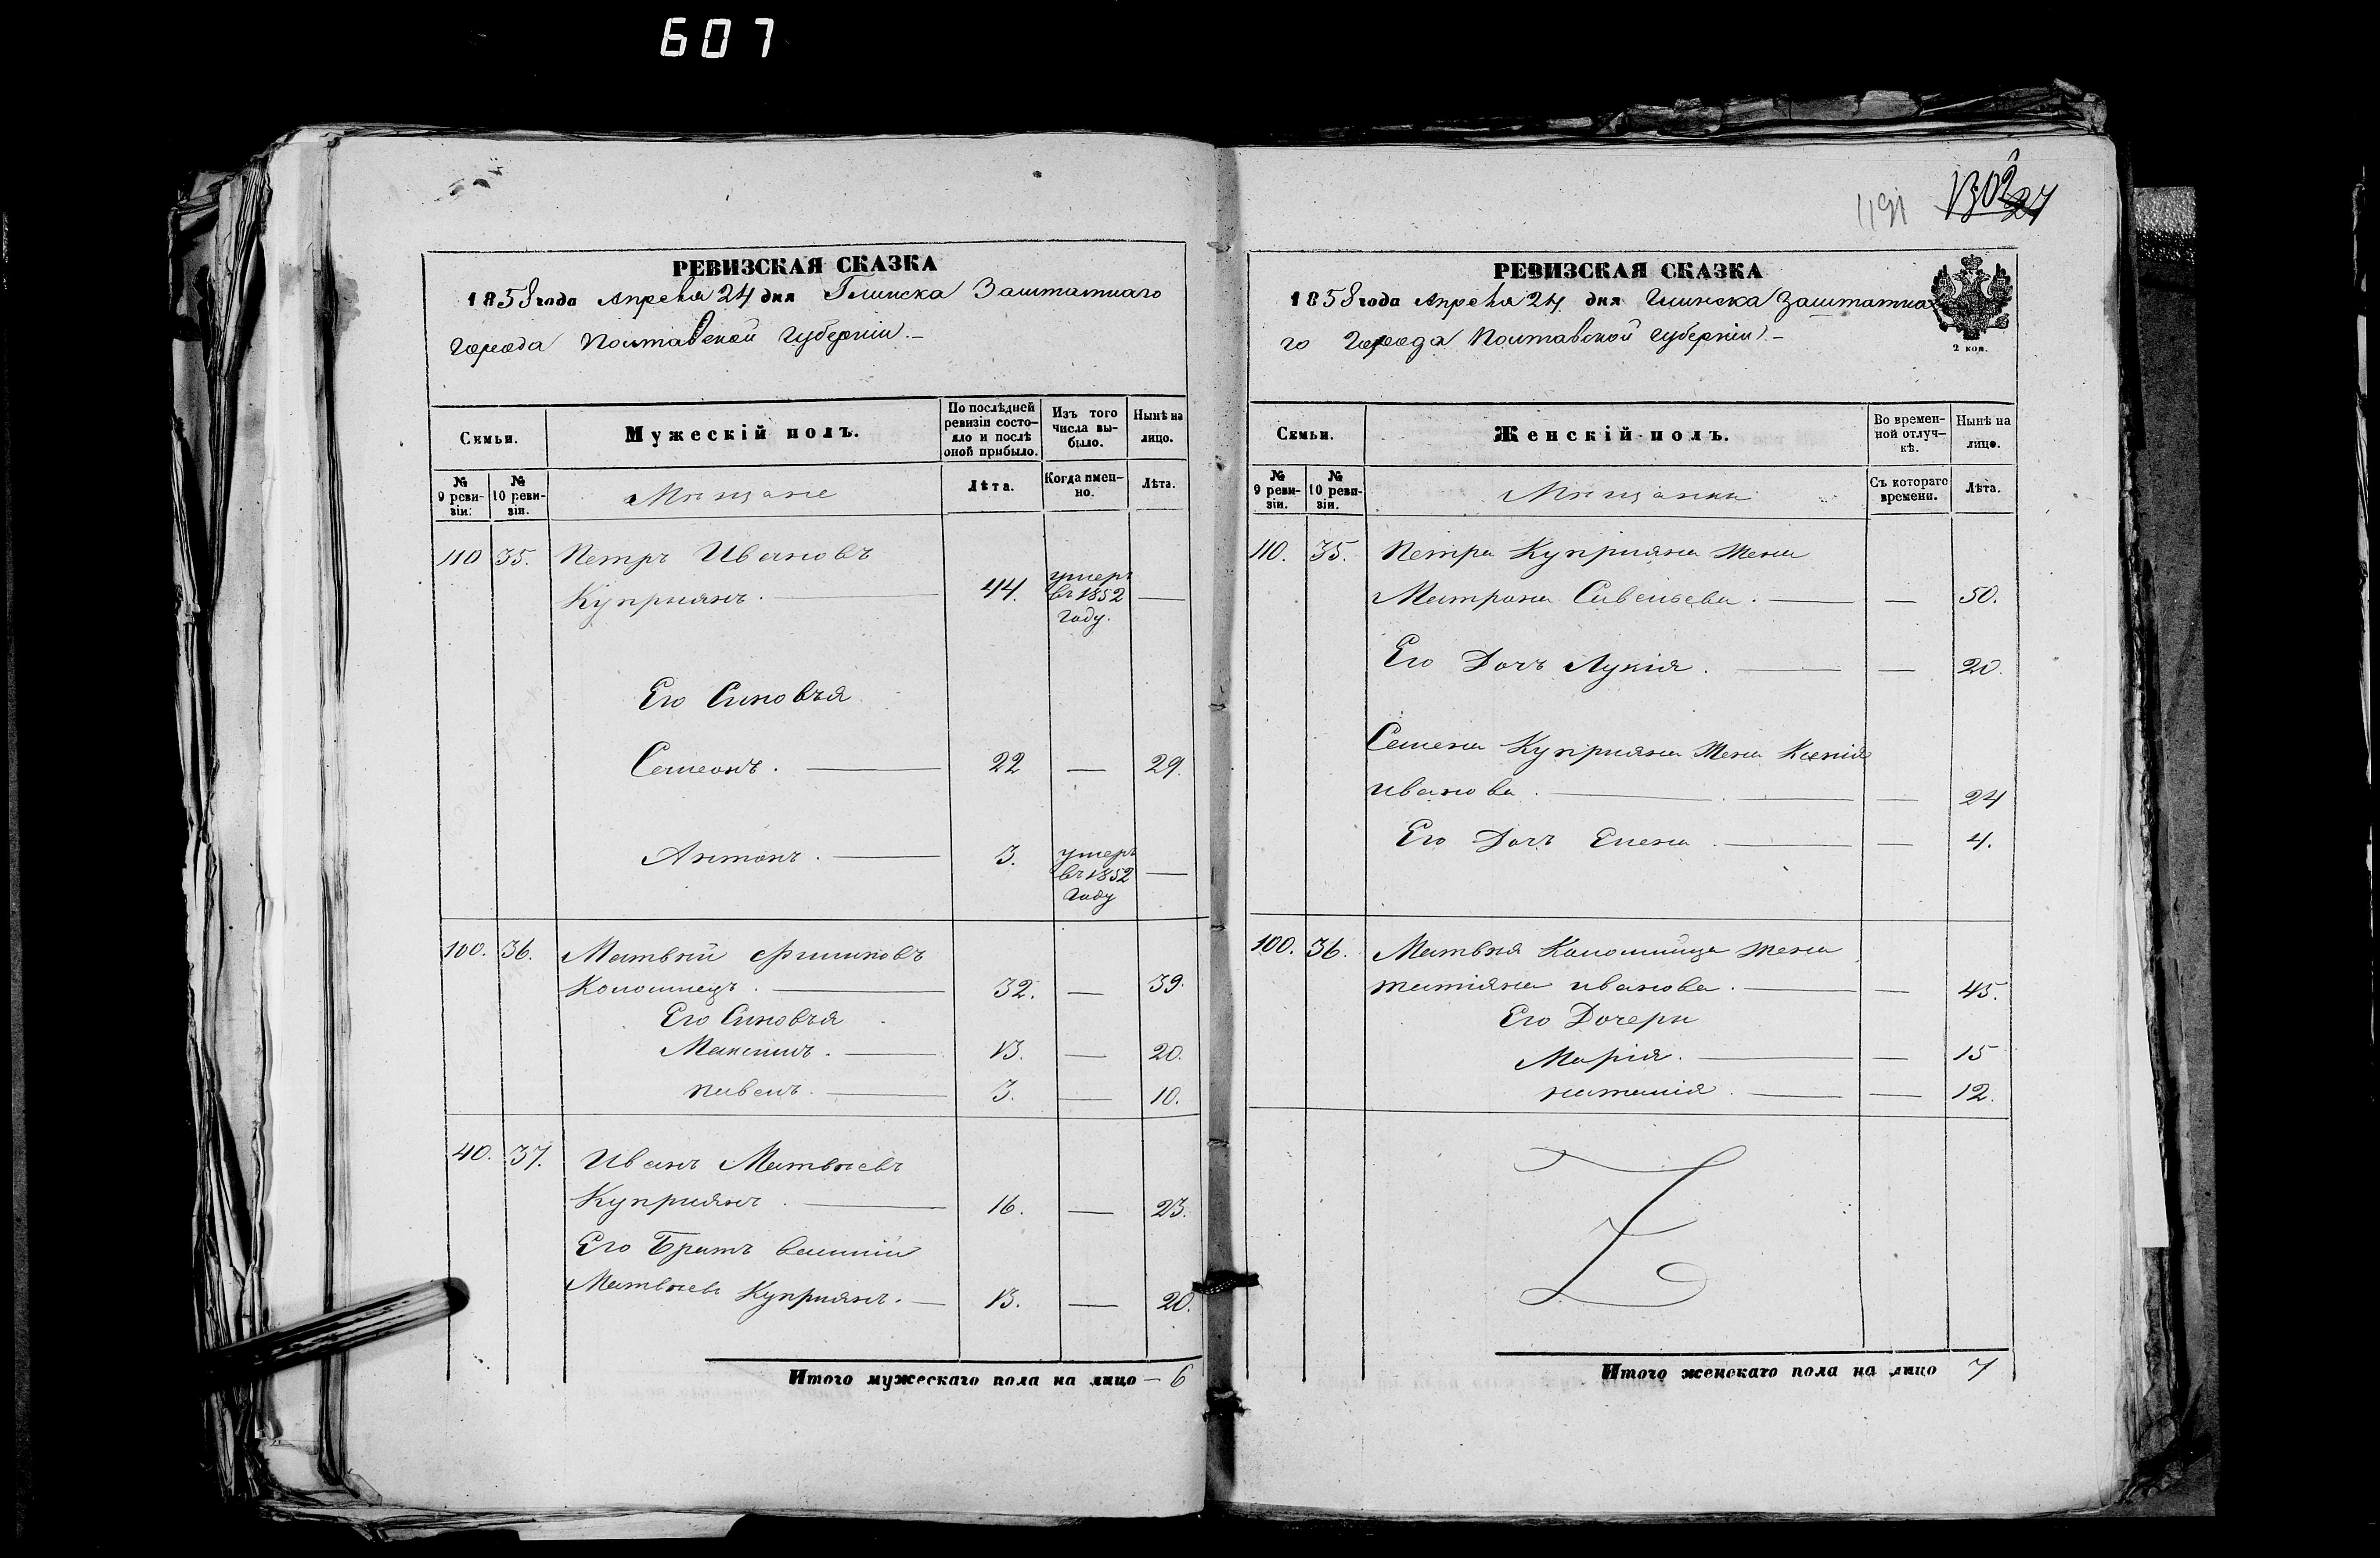 607
РЕВИЗСКАЯ СКАЗКА
1858 года Апреля 24 дня Глинска Заштатнаго
Города Полтавской Губерніи.–
Семьи.
Мужескій полъ.
По послѣдней ревизіи состояло и послѣ оной прибыло.
Изъ того числа выбыло.
Нынѣ на лицо.
№ 9 ревизіи.
№ 10 ревизіи.
Мѣщане
Лѣта.
Когда именно.
Лѣта.
110 35. Петръ Ивановъ
Куприянъ. — 44. умеръ въ 1852 Году. —
Его Сыновъя
Семенъ. — 22 — 29.
Антонъ. — 3. умеръ въ 1852 Году —
100. 36. Матвѣй Филиповъ
Коломиецъ. — 32. — 39.
Его Сыновъя
Максимъ. — 13. — 20.
Павелъ. — 3. — 10.
40. 37. Иванъ Матвѣевъ
Куприянъ. — 16. — 23.
Его Братъ
Матвѣевъ Куприянъ. — 13. — 20.
Итого мужескаго пола на лицо — 6
1191 1302 27
РЕВИЗСКАЯ СКАЗКА
1858 года Апреля 24 дня Глинска Заштатна
го Города Полтавской Губерніи.–
2 коп.
Семьи.
Женскій полъ.
Во временной отлучкѣ.
Нынѣ на лицо.
№ 9 ревизіи.
№ 10 ревизіи.
Мѣщанки
Съ котораго времени.
Лѣта.
110. 35. Петра Куприяна жена
Матрона Савельева. — — 50.
Его Дочъ Лукія. — — 20.
Семена Куприяна Жена Ксенія
Иванова. — — 24
Его Дочъ Елена. — — 4.
100. 36. Матвѣя Коломийца жена
Татіяна Иванова. — — 45.
Его Дочери
Марія. — — 15
Наталія. — — 12.
Итого женскаго пола на лицо 7